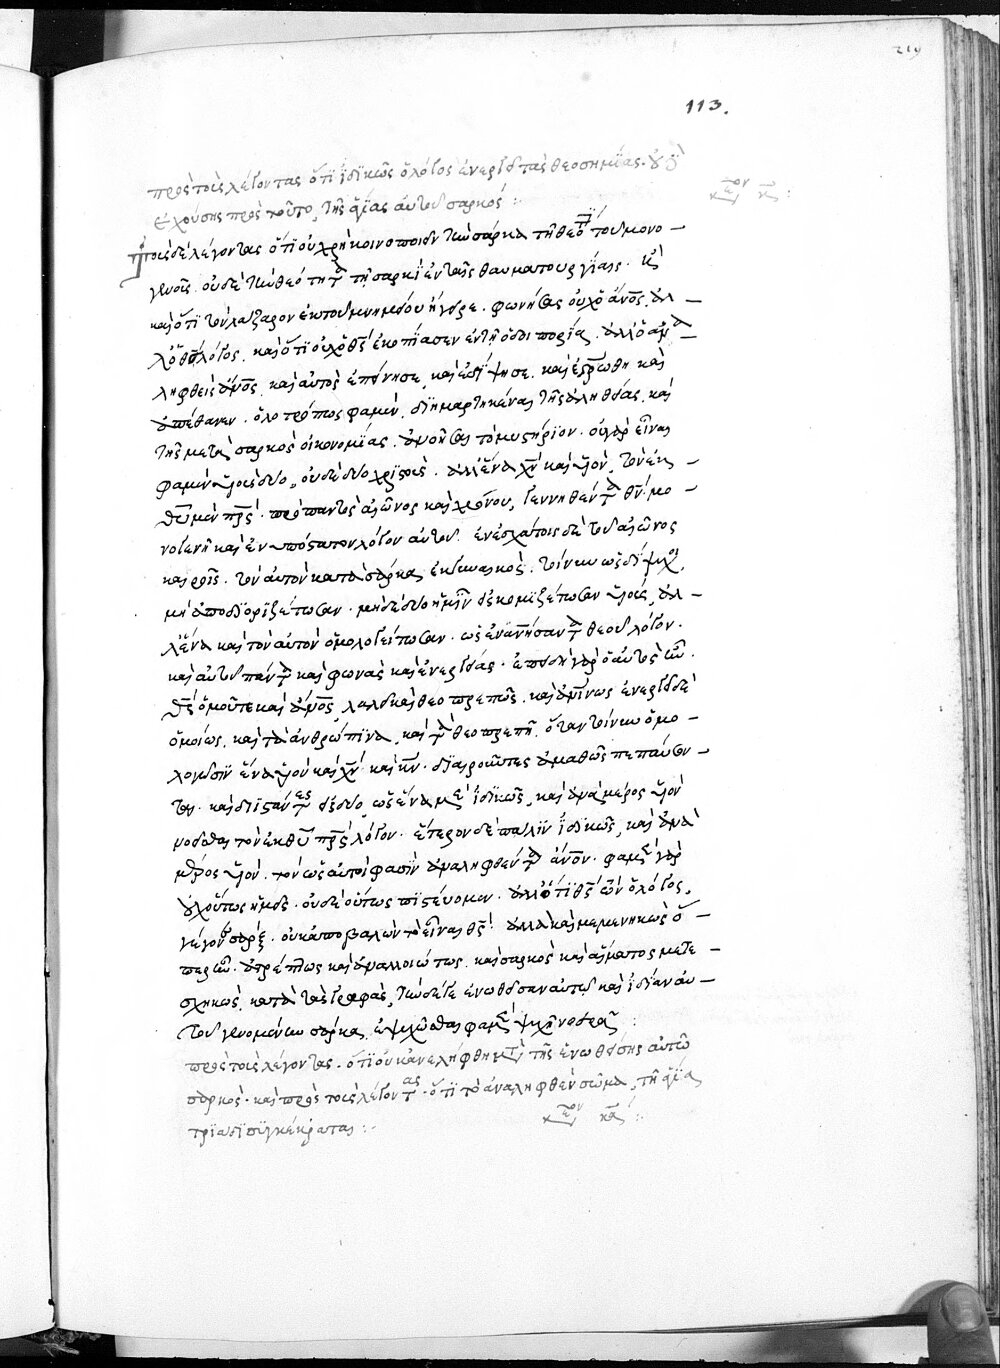 219
113.
πρὸς τοὺς λέγοντας ὅτι ἰδικῶς ὁ λόγος ἐνεργεῖ τὰς θεοσημίας. οὐ
ἐχούσης πρὸς τοῦτο, τῆς ἁγίας αὐτοῦ σαρκός :
τοῖς δὲ λέγοντας ὅτι οὐ χρὴ κοινοποιεῖν τὴν σάρκα τῇ θεότητι τοῦ μονο –
γενοῦς. οὐδὲ τὴν θεότητα τῇ σαρκὶ ἐν ταῖς θαυματουργίαις.
καὶ ὅτι τὸν λάζαρον ἐκ τοῦ μνημείου ἤγειρε. φωνήσας οὐχ ὁ ἄνος. ἀλ –
λ' ὁ θς λόγος. καὶ ὅτι οὐχ ὁ θς ἐκοπίασεν ἐν τῇ ὁδοιπορία. ἀλλ' ὁ ἀνα –
ληφθεὶς ἄνος. καὶ αὐτὸς ἐπείνησε, καὶ ἐδίψησε. καὶ ἐσρώθη καὶ
ἀπέθανεν. ὅλο τρόπως φαμὲν, διημαρτηκέναι τῆς ἀληθείας, καὶ
τῆς μετὰ σαρκὸς οἰκονομίας. ἀγνοῆσαι τὸ μυστήριον. οὐ γὰρ εἶναι
φαμὲν υἱοὺς δύο, οὐδὲ δύο χριστούς. ἀλλ' ἕνα χν καὶ υἱὸν, τὸν ἐκ –
θυ μὲν πρς. πρὸ παντὸς αἰῶνος καὶ χρόνου, γεννηθέντα θν. μο –
νογενῆ καὶ ἐνυπόστατον λόγον αὐτοῦ. ἐν ἐσχάτοις δὲ τοῦ αἰῶνος
καιροῖς. τὸν αὐτὸν κατὰ σάρκα, ἐκ γυναικός. τοίνυν ὡς δίψυχοι,
μὴ ἀποδιοριζέτωσαν. μηδὲ δύο ἡμῖν εἰσκομιζέτωσαν υἱούς, ἀλ –
λ' ἕνα καὶ τὸν αὐτὸν ὁμολογείτωσαν. ὡς ἐνανθρωπήσαντα θεοῦ λόγον.
καὶ αὐτοῦ πάντα καὶ φωνὰς καὶ ἐνεργείας. ἐπειδὴ γὰρ ὁ αὐτὸς ὢν.
θς ὁμοῦ τε καὶ ἄνος, λαλεῖ καὶ θεοπρεπῶς. καὶ ἀνίνως ἐνεργεῖ δὲ
ὁμοίως, καὶ τὰ ἀνθρώπινα, καὶ τὰ θεοπρεπῆ. ὅταν τοίνυν ὁμο –
λογῶσιν ἕνα υἱὸν καὶ χν καὶ κν. διαιροῦντες ἀμαθῶς πεπαύσθ –
ωσ. καὶ διϊστάντες εἰς δύο, ὡς ἕνα μὲν ἰδικῶς, καὶ ἀνὰ μέρος υἱὸν
νοεῖσθαι τὸν ἐκ θυ πρς λόγον. ἕτερον δὲ πάλιν ἰδικῶς, καὶ ἀνὰ
μέρος υἱὸν. τὸν ὡς αὐτοὶ φασὶν ἀναληφθέντα ἄνον. φαμὲν γὰρ
οὐχ οὕτως ἡμεῖς. οὐδὲ οὕτως πιστεύομεν. ἀλλ' ὅτι θς ὢν ὁ λόγος,
γέγονε σάρξ. οὐκ ἀποβαλὼν τὸ εἶναι θς. ἀλλὰ καὶ μεμενηκὼς ὅ –
περ ἦν. ἀτρέπτως καὶ ἀναλλοιώτως. καὶ σαρκὸς καὶ αἵματος μετε –
σχηκὼς, κατὰ τὰς γραφὰς, τήν γε ἑνωθεῖσαν αὐτῷ καὶ ἰδίαν αὐ –
τοῦ γενομένην σάρκα, ἐψυχῶσθαι φαμὲν ψυχῇ νοερᾷ :
πρὸς τοὺς λέγοντας. ὅτι οὐκ ἀνελήφθη μετὰ τῆς ἑνωθείσης αὐτῷ
σαρκός. καὶ πρὸς τοὺς λέγοντας. ὅτι τὸ ἀναληφθὲν σῶμα, τῇ ἁγίᾳ
τριάδι συγκέκραται :